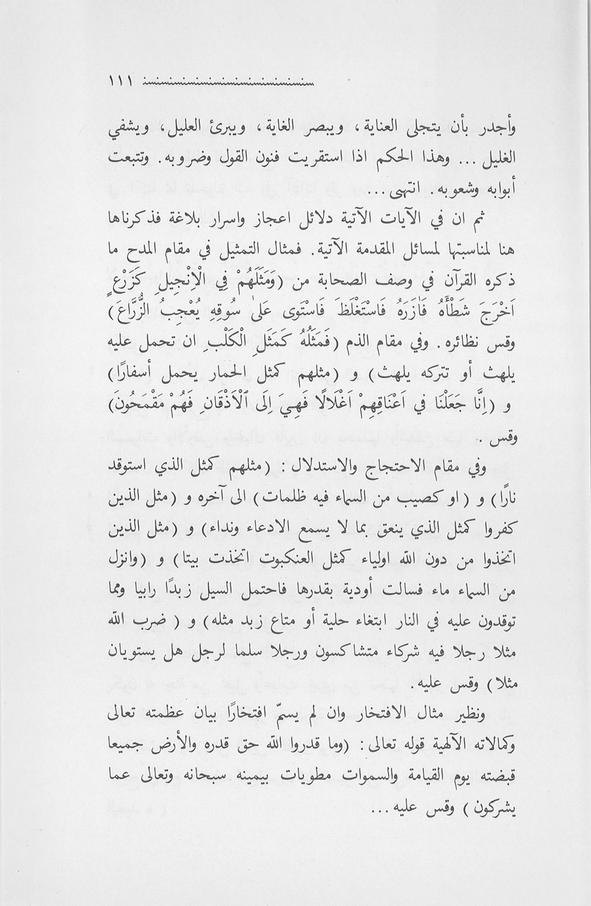 ١١١
وأجدر بأن يتجلى العناية، ويبصر الغاية، ويبرئ العليل، ويشفي
الغليل... وهذا الحكم اذا استقريت فنون القول وضروبه. وتتبعت
أبوابه وشعوبه. انتهى...
ثم ان في الآيات الآتية دلائل اعجاز واسرار بلاغة فذكرناها
هنا لمناسبتها لمسائل المقدمة الآتية. فمثال التمثيل في مقام المدح ما
ذكره القرآن في وصف الصحابة من (وَمَثَلُهُمْ فِي الْاِنْجِيلِ كَزَرْعٍ
اَخْرَجَ شَطْأَهُ فَاٰزَرَهُ فَاسْتَغْلَظَ فَاسْتَوٰى عَلٰى سُوقِهِ يُعْجِبُ الزُّرَّاعَ)
وقس نظائره. وفي مقام الذم (فَمَثَلُهُ كَمَثَلِ الْكَلْبِ ان تحمل عليه
يلهث أو تتركه يلهث) و (مثلهم كمثل الحمار يحمل أسفارًا)
و (اِنَّا جَعَلْنَا في اَعْنَاقِهِمْ اَغْلَالًا فَهِيَ اِلَى الْاَذْقَانِ فَهُمْ مُقْمَحُونَ)
وقس .
وفي مقام الاحتجاج والاستدلال : (مثلهم كمثل الذي استوقد
نارًا) و (او كصيب من السماء فيه ظلمات) الى آخره و (مثل الذين
كفروا كمثل الذي ينعق بما لا يسمع الادعاء ونداء) و (مثل الذين
اتخذوا من دون الله اولياء كمثل العنكبوت اتخذت بيتا) و (وانزل
من السماء ماء فسالت أودية بقدرها فاحتمل السيل زبدًا رابيا ومما
توقدون عليه في النار ابتغاء حلية أو متاع زبد مثله) و ( ضرب الله
مثلا رجلا فيه شركاء متشاكسون ورجلا سلما لرجل هل يستويان
مثلا) وقس عليه.
ونظير مثال الافتخار وان لم يسمّ افتخارًا بيان عظمته تعالى
وكمالاته الآلهية قوله تعالى: (وما قدروا الله حق قدره والأرض جميعا
قبضته يوم القيامة والسموات مطويات بيمينه سبحانه وتعالى عما
يشركون) وقس عليه...